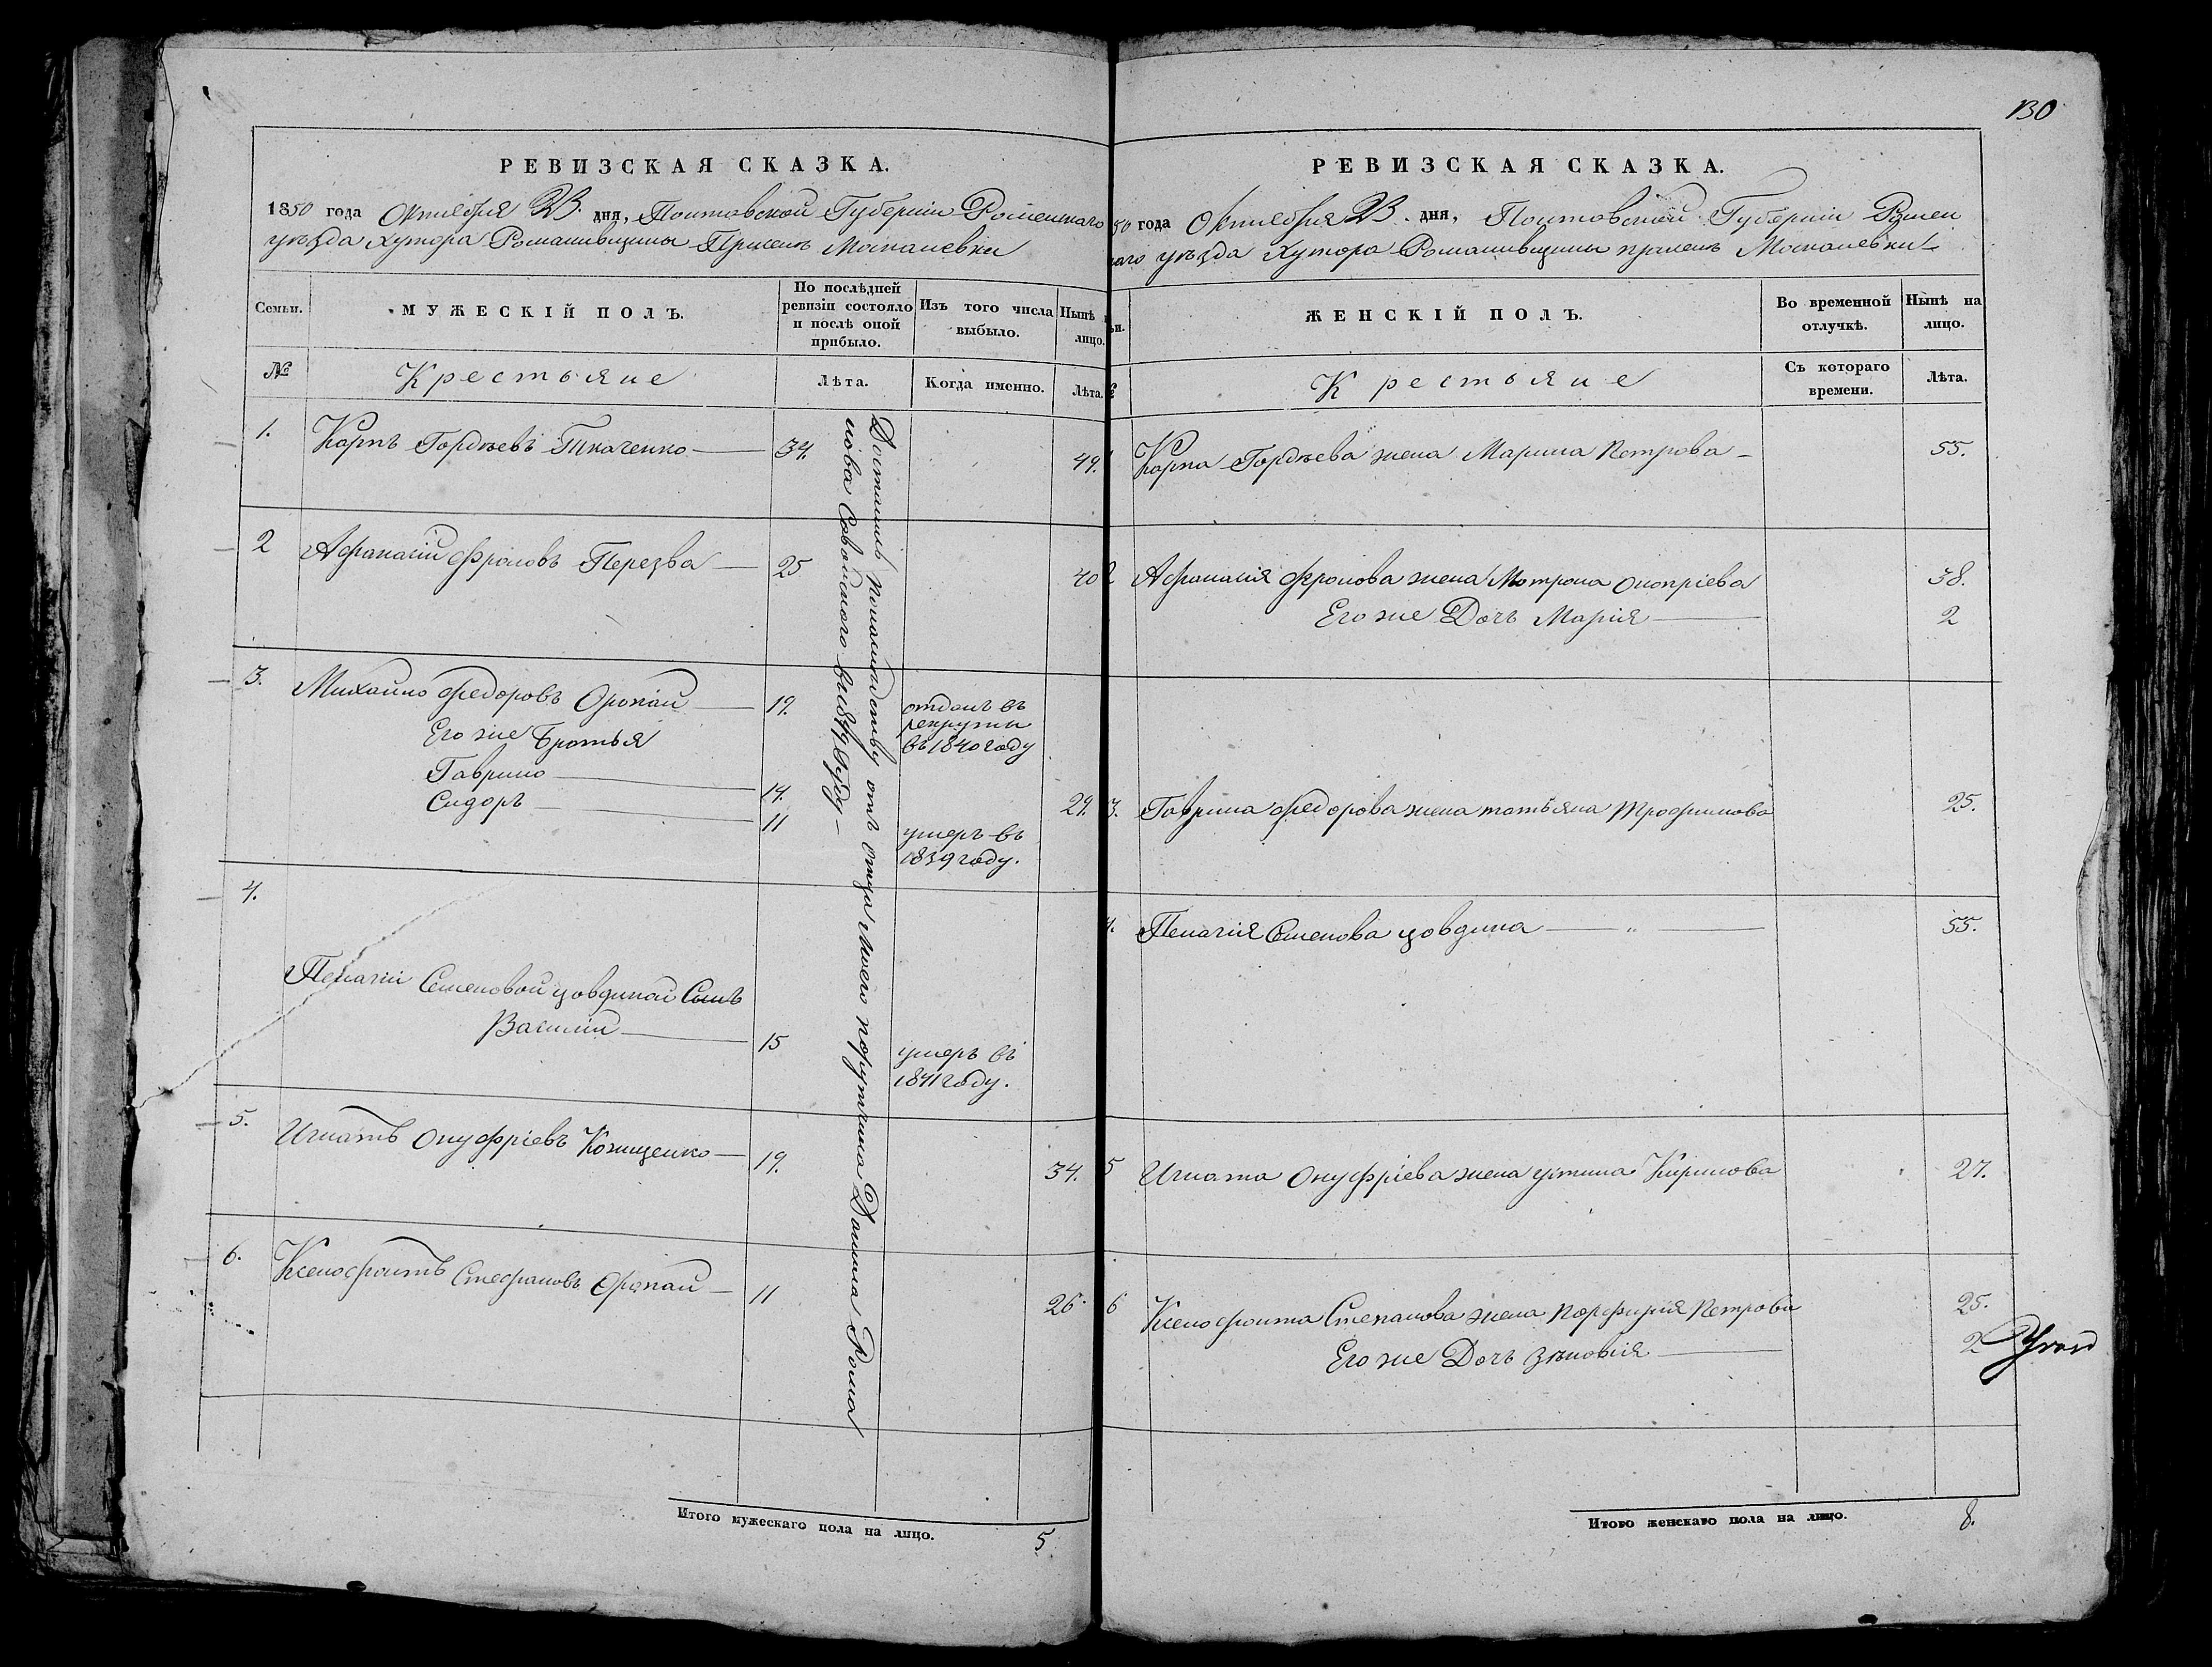 РЕВИЗСКАЯ СКАЗКА.
1850 года Октября 23. дня, Полтавской Губерніи Роменскаго
уѣзда Хутора Романивщины При селѣ Москалевки
Семьи.
МУЖЕСКІЙ ПОЛЪ.
По послѣдней ревизіи состояло и послѣ оной прибыло.
Изъ того числа выбыло.
Нынѣ на лицо.
№
Крестьяне
Лѣта.
Когда именно.
Лѣта.
1. Карпъ Гордѣевъ Ткаченко 34. 49.
2 Афанасій Фроловъ Перезва 25 40
3. Михайло Федоровъ Оропай 19. отданъ въ
рекруты
въ 1840 году
Его же Братья
Гаврило 14. 29.
Сидоръ 11 умеръ въ
1839 году.
4.
Пелагіи Семеновой удовдиной Сынъ
Василій 15 умеръ въ
1841 году.
5. Игнатъ Онуфріевъ Коженко 19. 34.
6. Ксенофонтъ Стефановъ Оропай 11 26.
Достались помолѣдству отъ отца моего порутчика Данила Рома
нова Савойского въ 1849 году
Итого мужескаго пола на лицо. 5.
130
РЕВИЗСКАЯ СКАЗКА.
50 года Октября 23. дня, Полтавской Губерніи Ромен
скаго уѣзда Хутора Романивщины при селѣ Москалевки
ЖЕНСКІЙ ПОЛЪ.
Во временной отлучкѣ.
Нынѣ на лицо.
Крестьяне
Съ котораго времени.
Лѣта.
Карпа Гордѣева жена Марина Петрова 55.
2 Афанасія Фролова жена Мотрона Оноприева 38.
Его же Дочь Марія 2
3. Гаврила Федорова жена татьяна Трофимова 25.
4. Пелагія Семенова 55.
5 Игната Онуфріева жена устина Кирилова 27.
6 Ксенофонта Степанова жена порфирія Петрова 25.
Его же Дочь Зѣновія 2
Итого женскаго пола на лицо. 8.